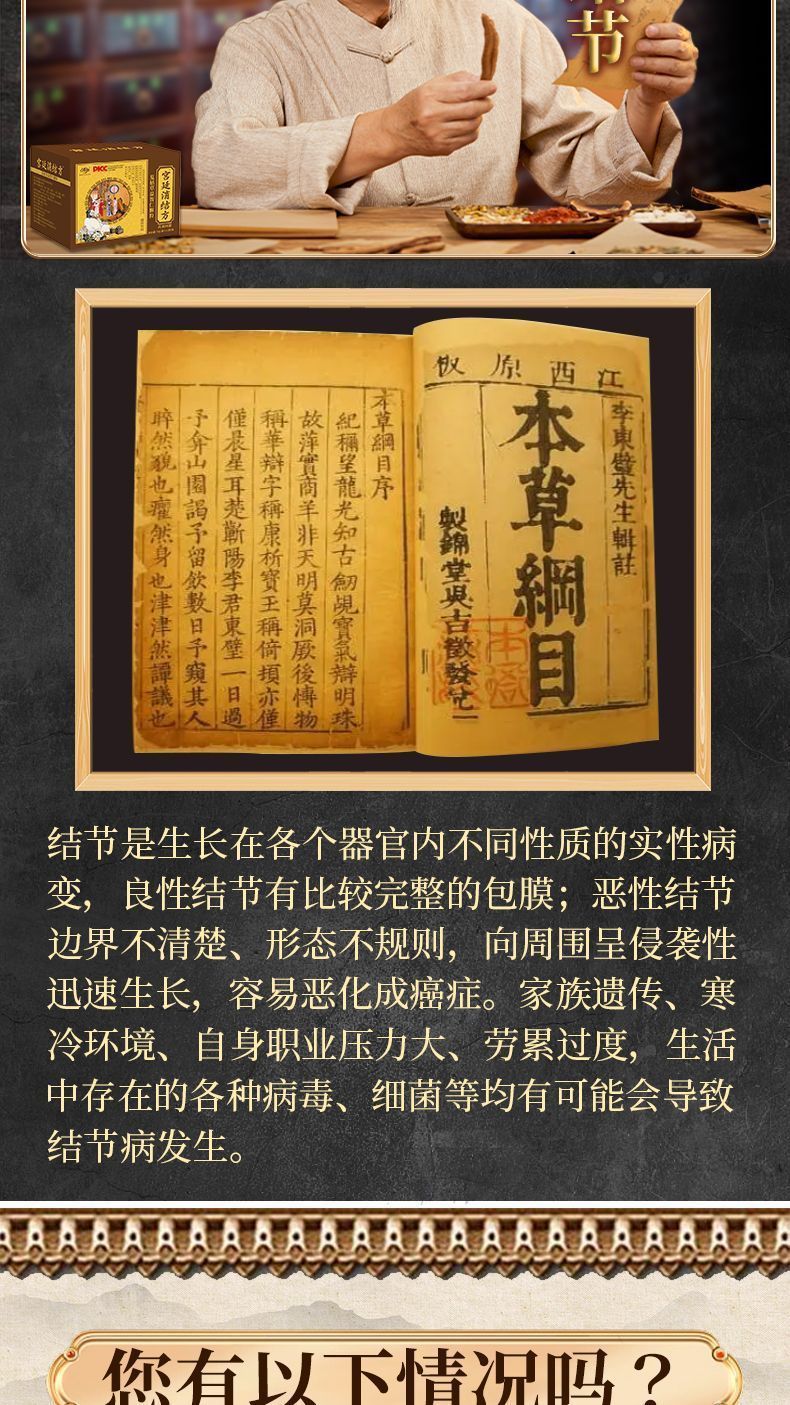 节
宫廷消结方
PICC
宫廷消结方
江西原板
李東璧先生輯註
本草綱目
本草綱目序
紀稱望龍光知古劒覘寶氣辯明珠
故萍實商羊非天明莫洞厥後博物
稱華辯字稱康析寶王稱倚頓亦僅
僅晨星耳楚蘄陽李君東璧一日過
予弇山園謁予留飲數日予窺其人
睟然貌也癯然身也津津然譚議也
结节是生长在各个器官内不同性质的实性病
变，良性结节有比较完整的包膜；恶性结节
边界不清楚、形态不规则，向周围呈侵袭性
迅速生长，容易恶化成癌症。家族遗传、寒
冷环境、自身职业压力大、劳累过度，生活
中存在的各种病毒、细菌等均有可能会导致
结节病发生。
您有以下情况吗？